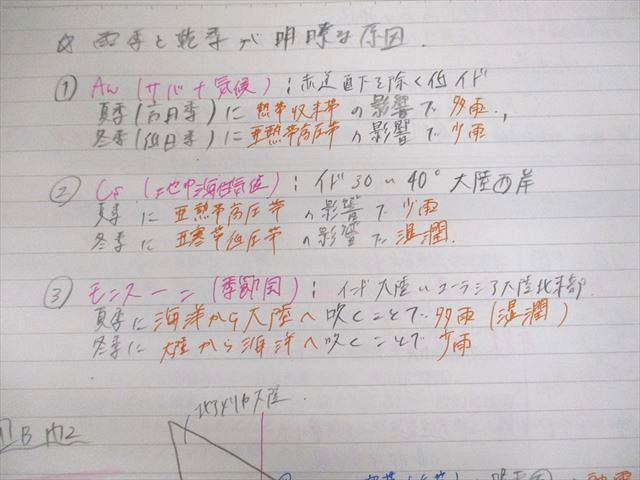 ☆ 雨季と乾季が明瞭な原因.
① Aw (サバナ気候) : 赤道直下を除く低イド
夏季 (高日季) に 熱帯収束帯 の影響で 多雨.,
冬季 (低日季) に 亜熱帯高圧帯 の影響で 少雨
② Cs (地中海性気候) : イド 30 ~ 40° 大陸西岸
夏季に 亜熱帯高圧帯 の影響で 少雨
冬季に 亜寒帯低圧帯 の影響で 湿潤.
③ モンスーン (季節風) : インド大陸~ユーラシア大陸北東部.
夏季に 海洋から大陸へ 吹くことで 多雨 (湿潤)
冬季に 大陸から海洋へ 吹くことで 少雨
北アメリカ大陸.